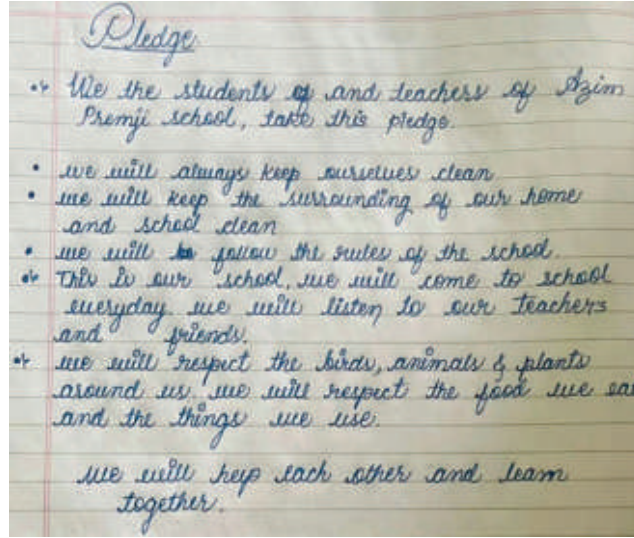 Pledge
We the students of and teachers of Azim
Premji school, take this pledge.
we will always keep ourselves clean
we will keep the surrounding of our home
and school clean
we will follow the rules of the school.
This is our school, we will come to school
everyday. we will listen to our teachers
and friends.
we will respect the birds, animals & plants
around us. we will respect the food we ea
and the things we use.
we will help each other and learn
together.